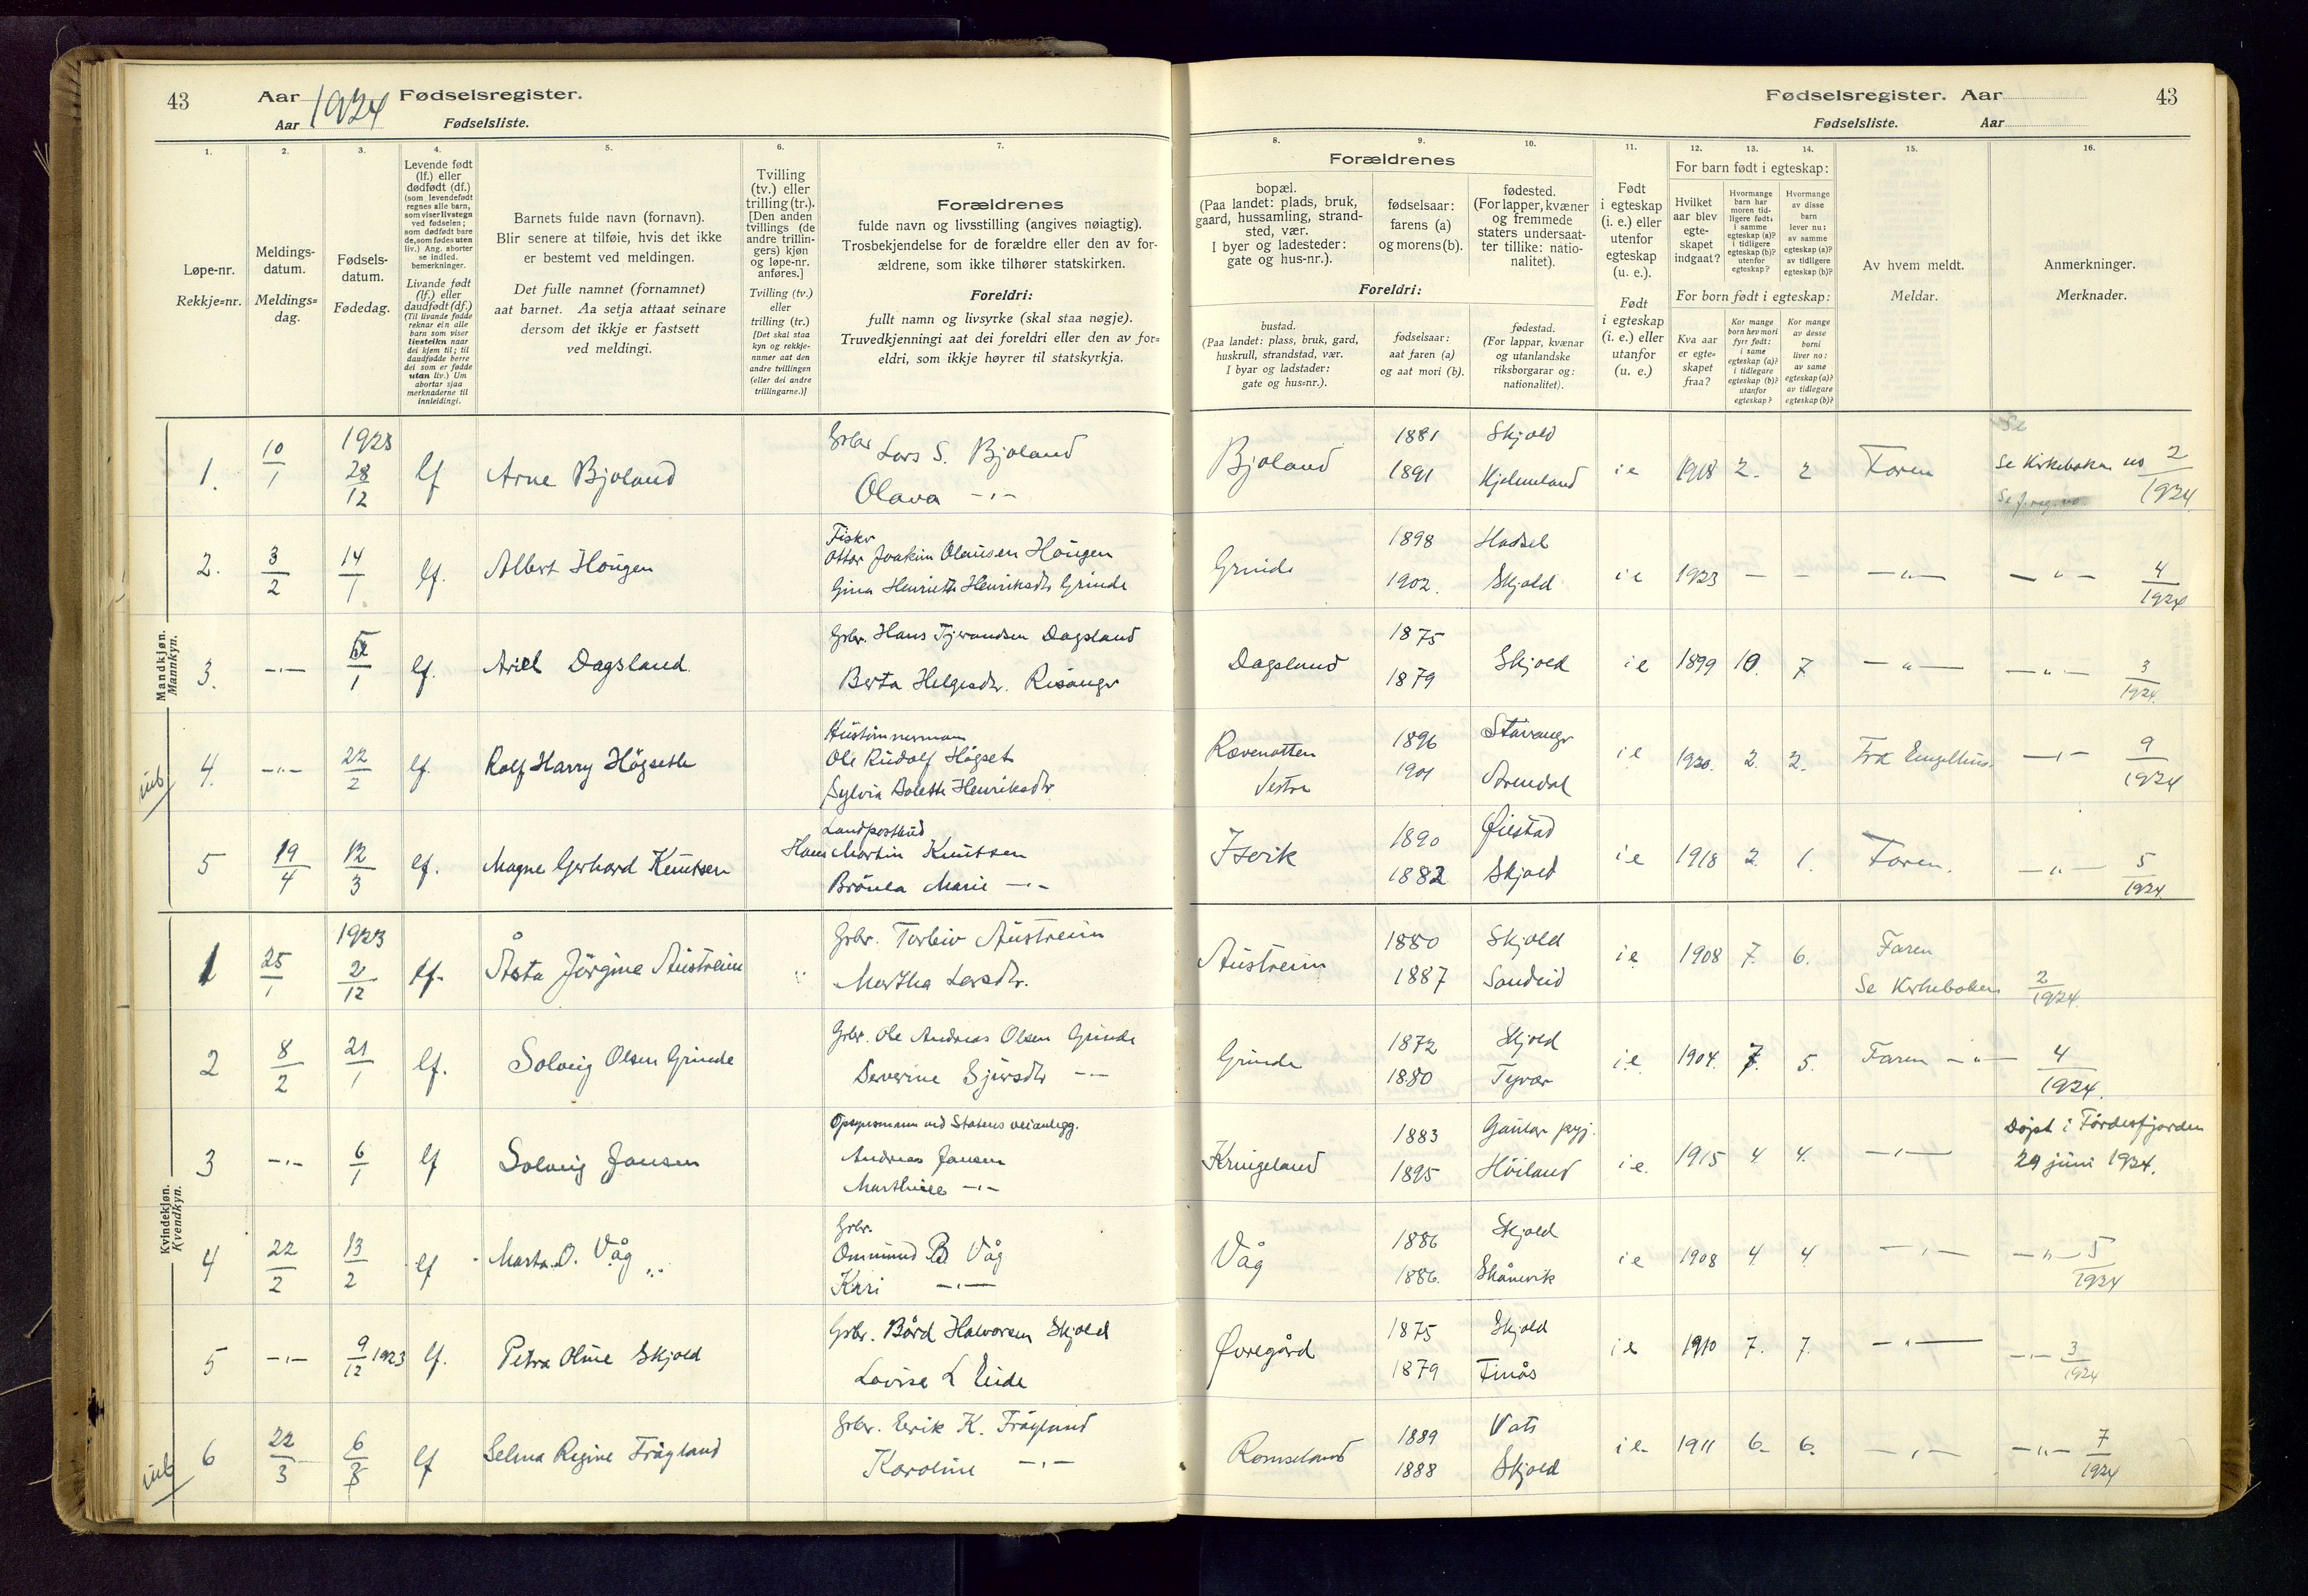 43
Aar 1924 Fødselsregister.
Aar Fødselsliste.
Fødselsregister. Aar
43
Fødselsliste. Aar
1.
2.
3.
4.
5.
6.
7.
8.
9.
10.
11.
12.
13.
14.
15.
16.
Løpe-nr.
Rekkje=nr.
Meldings-
datum.
Meldings=
dag.
Fødsels-
datum.
Fødedag.
Levende født
(lf.) eller
dødfødt (df.)
(som levendefødt
regnes alle barn,
som viser livstegn
ved fødselen;
som dødfødt bare
de, som fødes uten
liv.) Ang. aborter
se indled.
bemerkninger.
Livande født
(lf.) eller
daudfødt (df.)
(Til livande fødde
reknar ein alle
barn som viser
livsteikn naar
dei kjem til; til
daudfødde berre
dei som er fødde
utan liv.) Um
abortar sjaa
merknaderne til
innleidingi.
Barnets fulde navn (fornavn).
Blir senere at tilføie, hvis det ikke
er bestemt ved meldingen.
Det fulle namnet (fornamnet)
aat barnet. Aa setja attaat seinare
dersom det ikkje er fastsett
ved meldingi.
Tvilling
(tv.) eller
trilling (tr.).
[Den anden
tvillings (de
andre trillin-
gers) kjøn
og løpe-nr.
anføres.]
Tvilling (tv.)
eller
trilling (tr.)
[Det skal staa
kyn og rekkje-
nummer aat den
andre tvillingen
(eller dei andre
trillingarne.)]
Forældrenes
fulde navn og livsstilling (angives nøiagtig).
Trosbekjendelse for de forældre eller den av for-
ældrene, som ikke tilhører statskirken.
Foreldri:
fullt namn og livsyrke (skal staa nøgje).
Truvedkjenningi aat dei foreldri eller den av for=
eldri, som ikkje høyrer til statskyrkja.
Forældrenes
bopæl.
(Paa landet: plads, bruk,
gaard, hussamling, strand-
sted, vær.
I byer og ladesteder:
gate og hus-nr.).
fødselsaar:
farens (a)
og morens (b).
fødested.
(For lapper, kvæner
og fremmede
staters undersaat-
ter tillike: natio-
nalitet).
Foreldri:
bustad.
(Paa landet: plass, bruk, gard,
huskrull, strandstad, vær.
I byar og ladstader:
gate og hus=nr.).
fødselsaar:
aat faren (a)
og aat mori (b).
fødestad.
(For lappar, kvænar
og utanlandske
riksborgarar og:
nationalitet).
Født
i egteskap
(i. e.) eller
utenfor
egteskap
(u. e.).
Født
i egteskap
(i. e.) eller
utanfor
(u. e.)
For barn født i egteskap:
Hvilket
aar blev
egte-
skapet
indgaat?
Hvormange
barn har
moren tid-
ligere født:
i samme
egteskap (a)?
i tidligere
egteskap (b)?
utenfor
egteskap?
Hvormange
av disse
barn
lever nu:
av samme
egteskap (a)?
av tidligere
egteskap (b)?
For born født i egteskap:
Kva aar
er egte=
skapet
fraa?
Kor mange
born hev mori
fyrr født:
i same
egteskap (a)?
i tidlegare
egteskap (b)?
utanfor
egteskap?
Kor mange
av desse
borni
liver no:
av same
egteskap (a)?
av tidlegare
egteskap (b)?
Av hvem meldt.
Meldar.
Anmerkninger.
Merknader.
Mandkjøn.
Mannkyn.
1. 10/1 1923 28/12 lf Arne Bjoland Grbr Lars S. Bjoland
Olava -"-
Bjoland 1881 1891 Skjold Hjelmeland i e 1918 2. 2 Faren Se Kirkeboken no 2/1924
2. 3/2 14/1 lf. Albert Haugen Fisker
Ottar Joakim Olausen Haugen
Gina Henriette Henriksdtr Grinde
Grinde 1898 1902. Hadsel Skjold i e 1923 - - -"- -"- 4/1924
3. -"- 5/1 lf. Ariel Dagsland. Grbr. Hans Tjerandsen Dagsland
Berta Helgesdtr. Risanger
Dagsland 1875 1879 Skjold i e 1899 10. 7 -"- -"- 3/1924.
4. -"- 22/2 lf. Rolf Harry Høgseth Hustømmerman
Ole Rudolf Høgset
Sylvia Dolette Henriksdtr
Ravenatten
Vestre
1896 1901 Stavanger Arendal i e 1920. 2. 2. Frk -"- 9/1924
5 19/4 12/3 lf. Magne Gerhard Knutsen Landpostbud
Hans Martin Knutsen
Marie -"-
Isvik 1890 1882 Øiestad Skjold i e 1918 2. 1. Faren. -"- 5/1924
Kvindekjøn.
Kvendkyn.
1 25/1 1923 2/12 lf. Åsta Jörgine Austreim Grbr. Torleiv Austreim
Martha Larsdtr.
Austreim 1880 1887 Skjold Sandeid i e 1908 7. 6. Faren
Se Kirkeboken 2/1924.
2 8/2 21/1 lf. Solveig Olsen Grinde Grbr. Ole Andreas Olsen Grinde
Severine Sjursdtr -"-
Grinde 1872 1880 Skjold Tysvær i e 1904. 7. 5. Faren -"- 4/1924.
3 -"- 6/1 lf Solveig Jansen Opsynsmann ved Statens veianlegg.
Andreas Jansen
Marthine -"-
Kringeland 1883 1895 Gaular Høiland i e. 1915 4. 4. -"- Døpt i Førdesfjorden
29 juni 1924.
4 22/2 13/2 lf Marta. O. Våg Grbr.
Ommund B Våg
Kari -"-
Våg 1886 1886. Skjold Skånevik i e 1908 4. 4. -"- -"- 5/1924
5 -"- 9/12 1923 lf. Petra Oline Skjold Grbr. Bård Halvorsen Skjold
Lovise L Eide
Øvregård 1875 1879 Skjold Finås i e 1910 7. 7. -"- -"- 3/1924
6 22/3 6/3 lf Selma Regine Frøyland Grbr. Eerik K. Frøyland
Karoline -"-
Romseland 1889 1888 Vats Skjold i e. 1911 6. 6. -"- -"- 7/1924